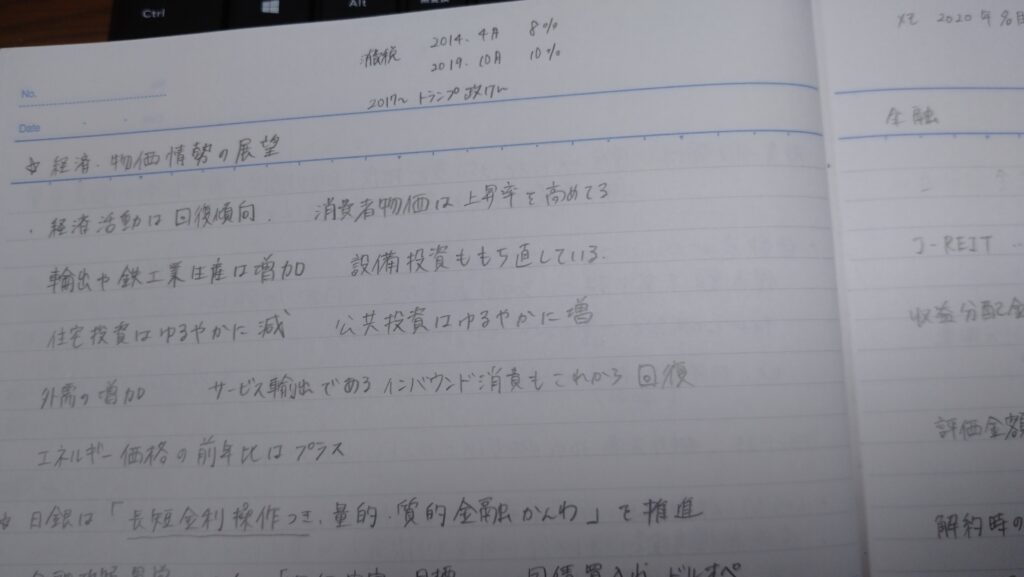 Ctrl
Alt
消費税 2014.4月 8%
2019.10月 10%
2017〜 トランプ政けん
No.
Date
☆経済・物価情勢の展望
・経済活動は回復傾向. 消費者物価は上昇率を高めてる
輸出や鉄工業生産は増加 設備投資ももち直している.
住宅投資はゆるやかに減 公共投資はゆるやかに増
外需の増加 サービス輸出であるインバウンド消費もこれから回復
エネルギー価格の前年比はプラス
☆日銀は「長短金利操作つき、量的・質的金融かんわ」を推進
メモ 2020年
金融
J-REIT
収益分配金
評価金額
解約時の